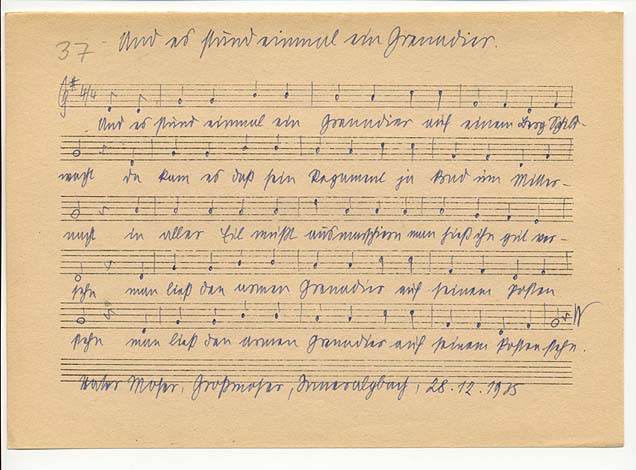 37. Und es stund einmal ein Grenadier.
4/4
Und es stund einmal ein Grenadier auf einem Berg Schild-
wacht da kam es daß sein Regament ja Bud um Mitter-
nacht in aller Eil mußt ausmaschiern man hieß ihn gut ver-
sehn man ließ den armen Grenadier auf seinem Posten
stehn man ließ den armen Grenadier auf seinem Posten stehn.
Vater Moser, Großmoser, Inneralpbach, 28.12.1935